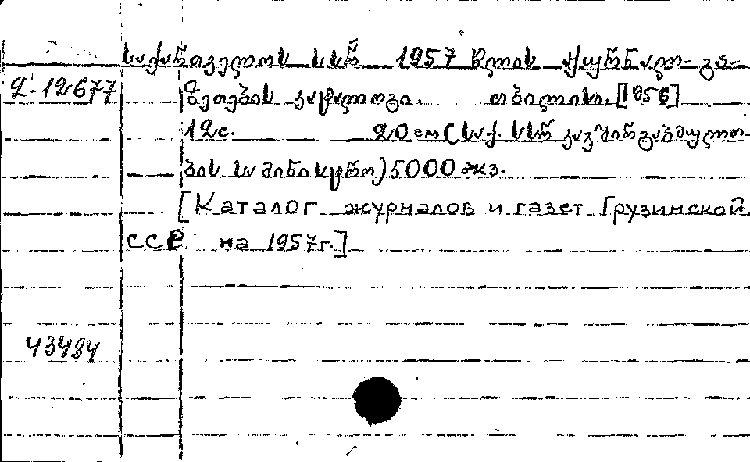 საქართველოს სსრ 1957 წლის ჟურნალ-გა-
ძ-12677 ზეთების კატალოგი. თბილისი. [1956]
12с. 20 см (საქ. სსრ კავშირგაბმულო-
ბის სამინისტრო) 5000 экз.
[Каталог журналов и газет Грузинской
ССР на 1957г.]
43484